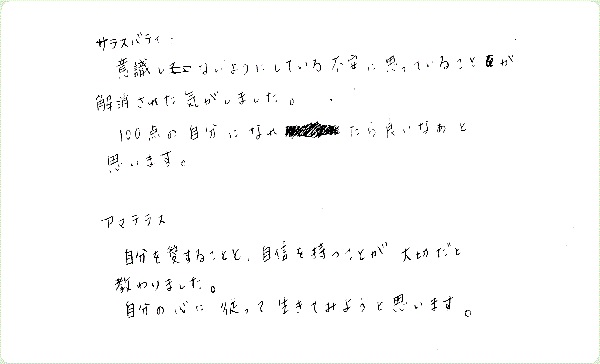 サラスバティ.
意識しないようにしている不安に思っていることが
解消された気がしました。
100点の自分になれたら良いなあと
思います。
アマテラス
自分を愛することと、自信を持つことが大切だと
教わりました。
自分の心に従って生きてみようと思います。